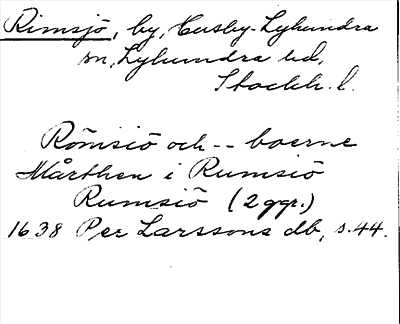 Rimsjö, by, Husby-Lyhundra
sn, Lyhundra hd,
Stockh. l.
Römsiö och -- boerne
Mårthen i Rumsiö
Rumsiö (2 ggr.)
1638 Per Larssons db, s. 44.